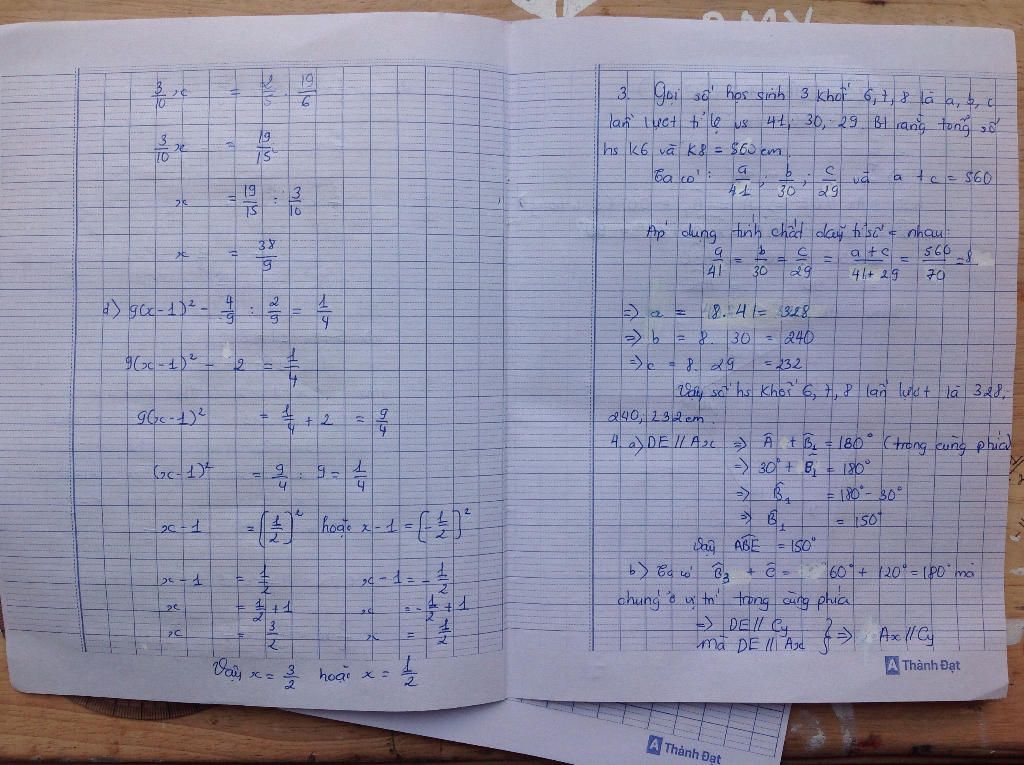 3/10 x = 2/5 . 19/6
3/10 x = 19/15
x = 19/15 : 3/10
x = 38/9
d) 9(x-1)² - 4/9 : 2/9 = 1/4
9(x-1)² - 2 = 1/4
9(x-1)² = 1/4 + 2 = 9/4
(x-1)² = 9/4 : 9 = 1/4
x-1 = (1/2)² hoặc x-1 = (-1/2)²
x-1 = 1/2 x-1 = -1/2
x = 1/2 + 1 x = -1/2 + 1
x = 3/2 x = 1/2
Vậy x = 3/2 hoặc x = 1/2
3. Gọi số học sinh 3 khối 6, 7, 8 là a, b, c
lần lượt tỉ lệ vs 41; 30; 29. Bt rằng tổng số
hs K6 và K8 = 560 cm
Ta có: a/41 ; b/30 ; c/29 và a + c = 560
Áp dụng tính chất dãy tỉ số = nhau:
a/41 = b/30 = c/29 = a+c/41+29 = 560/70 = 8
=> a = 8. 41 = 328
=> b = 8. 30 = 240
=> c = 8. 29 = 232
Vậy số hs khối 6, 7, 8 lần lượt là 328;
240; 232 cm.
4. a) DE // Ax => Â + B̂₁ = 180° (trong cùng phía)
=> 30° + B̂₁ = 180°
=> B̂₁ = 180° - 30°
=> B̂₁ = 150°
Vậy ABE = 150°
b) Ta có B̂₃ + Ĉ = 60° + 120° = 180° mà
chúng ở vị trí trong cùng phía
=> DE // Cy
mà DE // Ax } => Ax // Cy
A Thành Đạt
A Thành Đạt